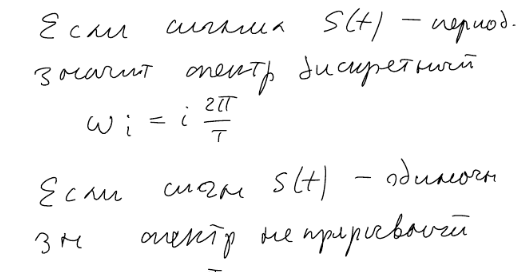 Если сигнал S(t) – период.
значит спектр дискретный
ωi = i 2π/T
Если сигн S(t) – одиночн
зн спектр непрерывный